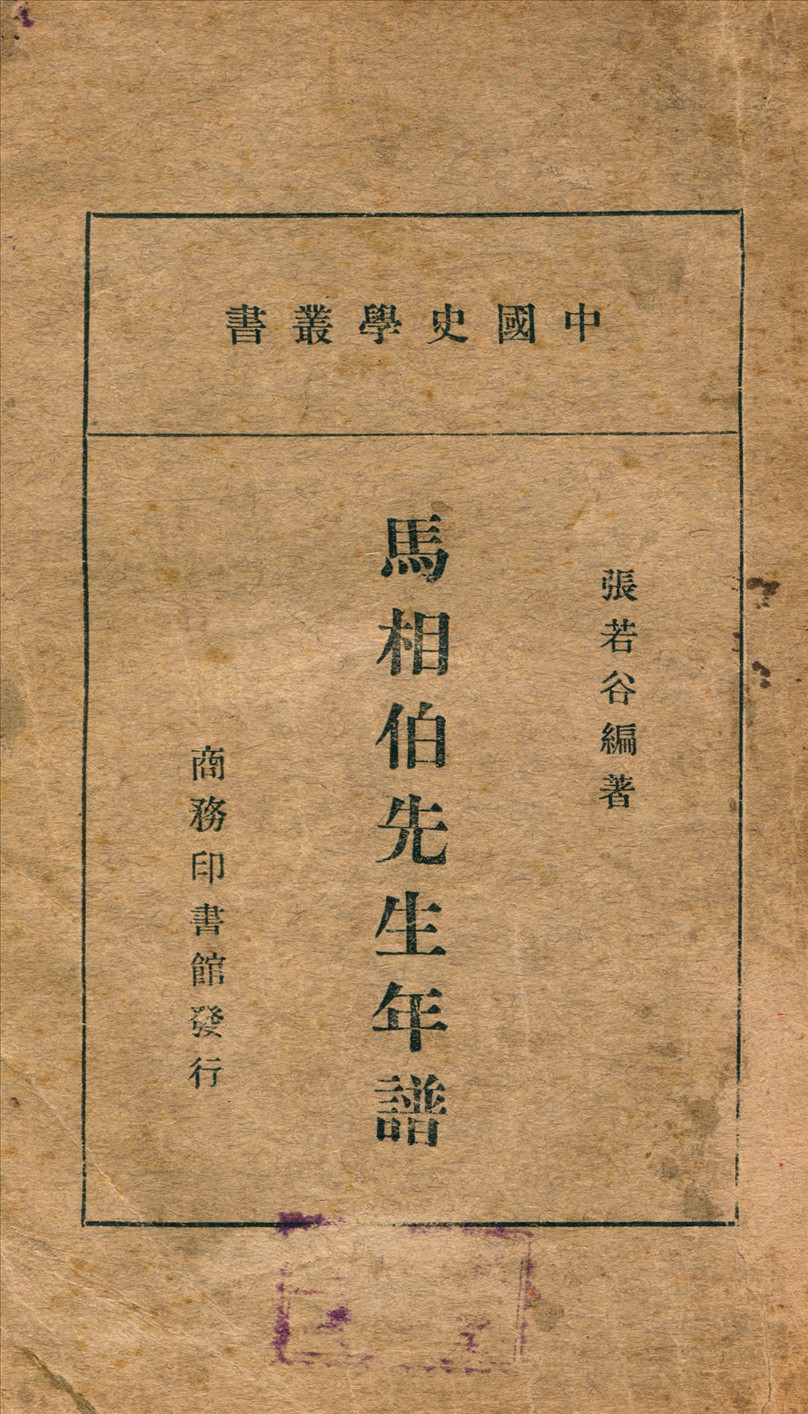 中國史學叢書
張若谷編著
馬相伯先生年譜
商務印書館發行